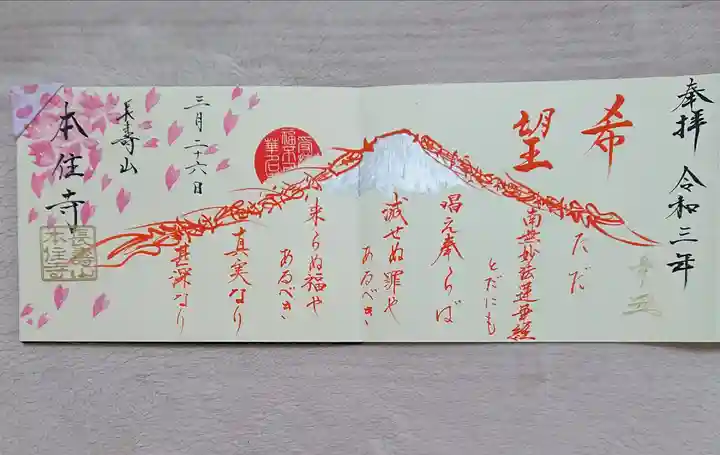 奉拝 令和三年
希望
ただ
南無妙法蓮華経
とだにも
唱え奉らば
滅せぬ罪や
あるべき
来らぬ福や
あるべき
真実なり
甚深なり
三月二十六日
長壽山
本住寺
長壽山
本住寺